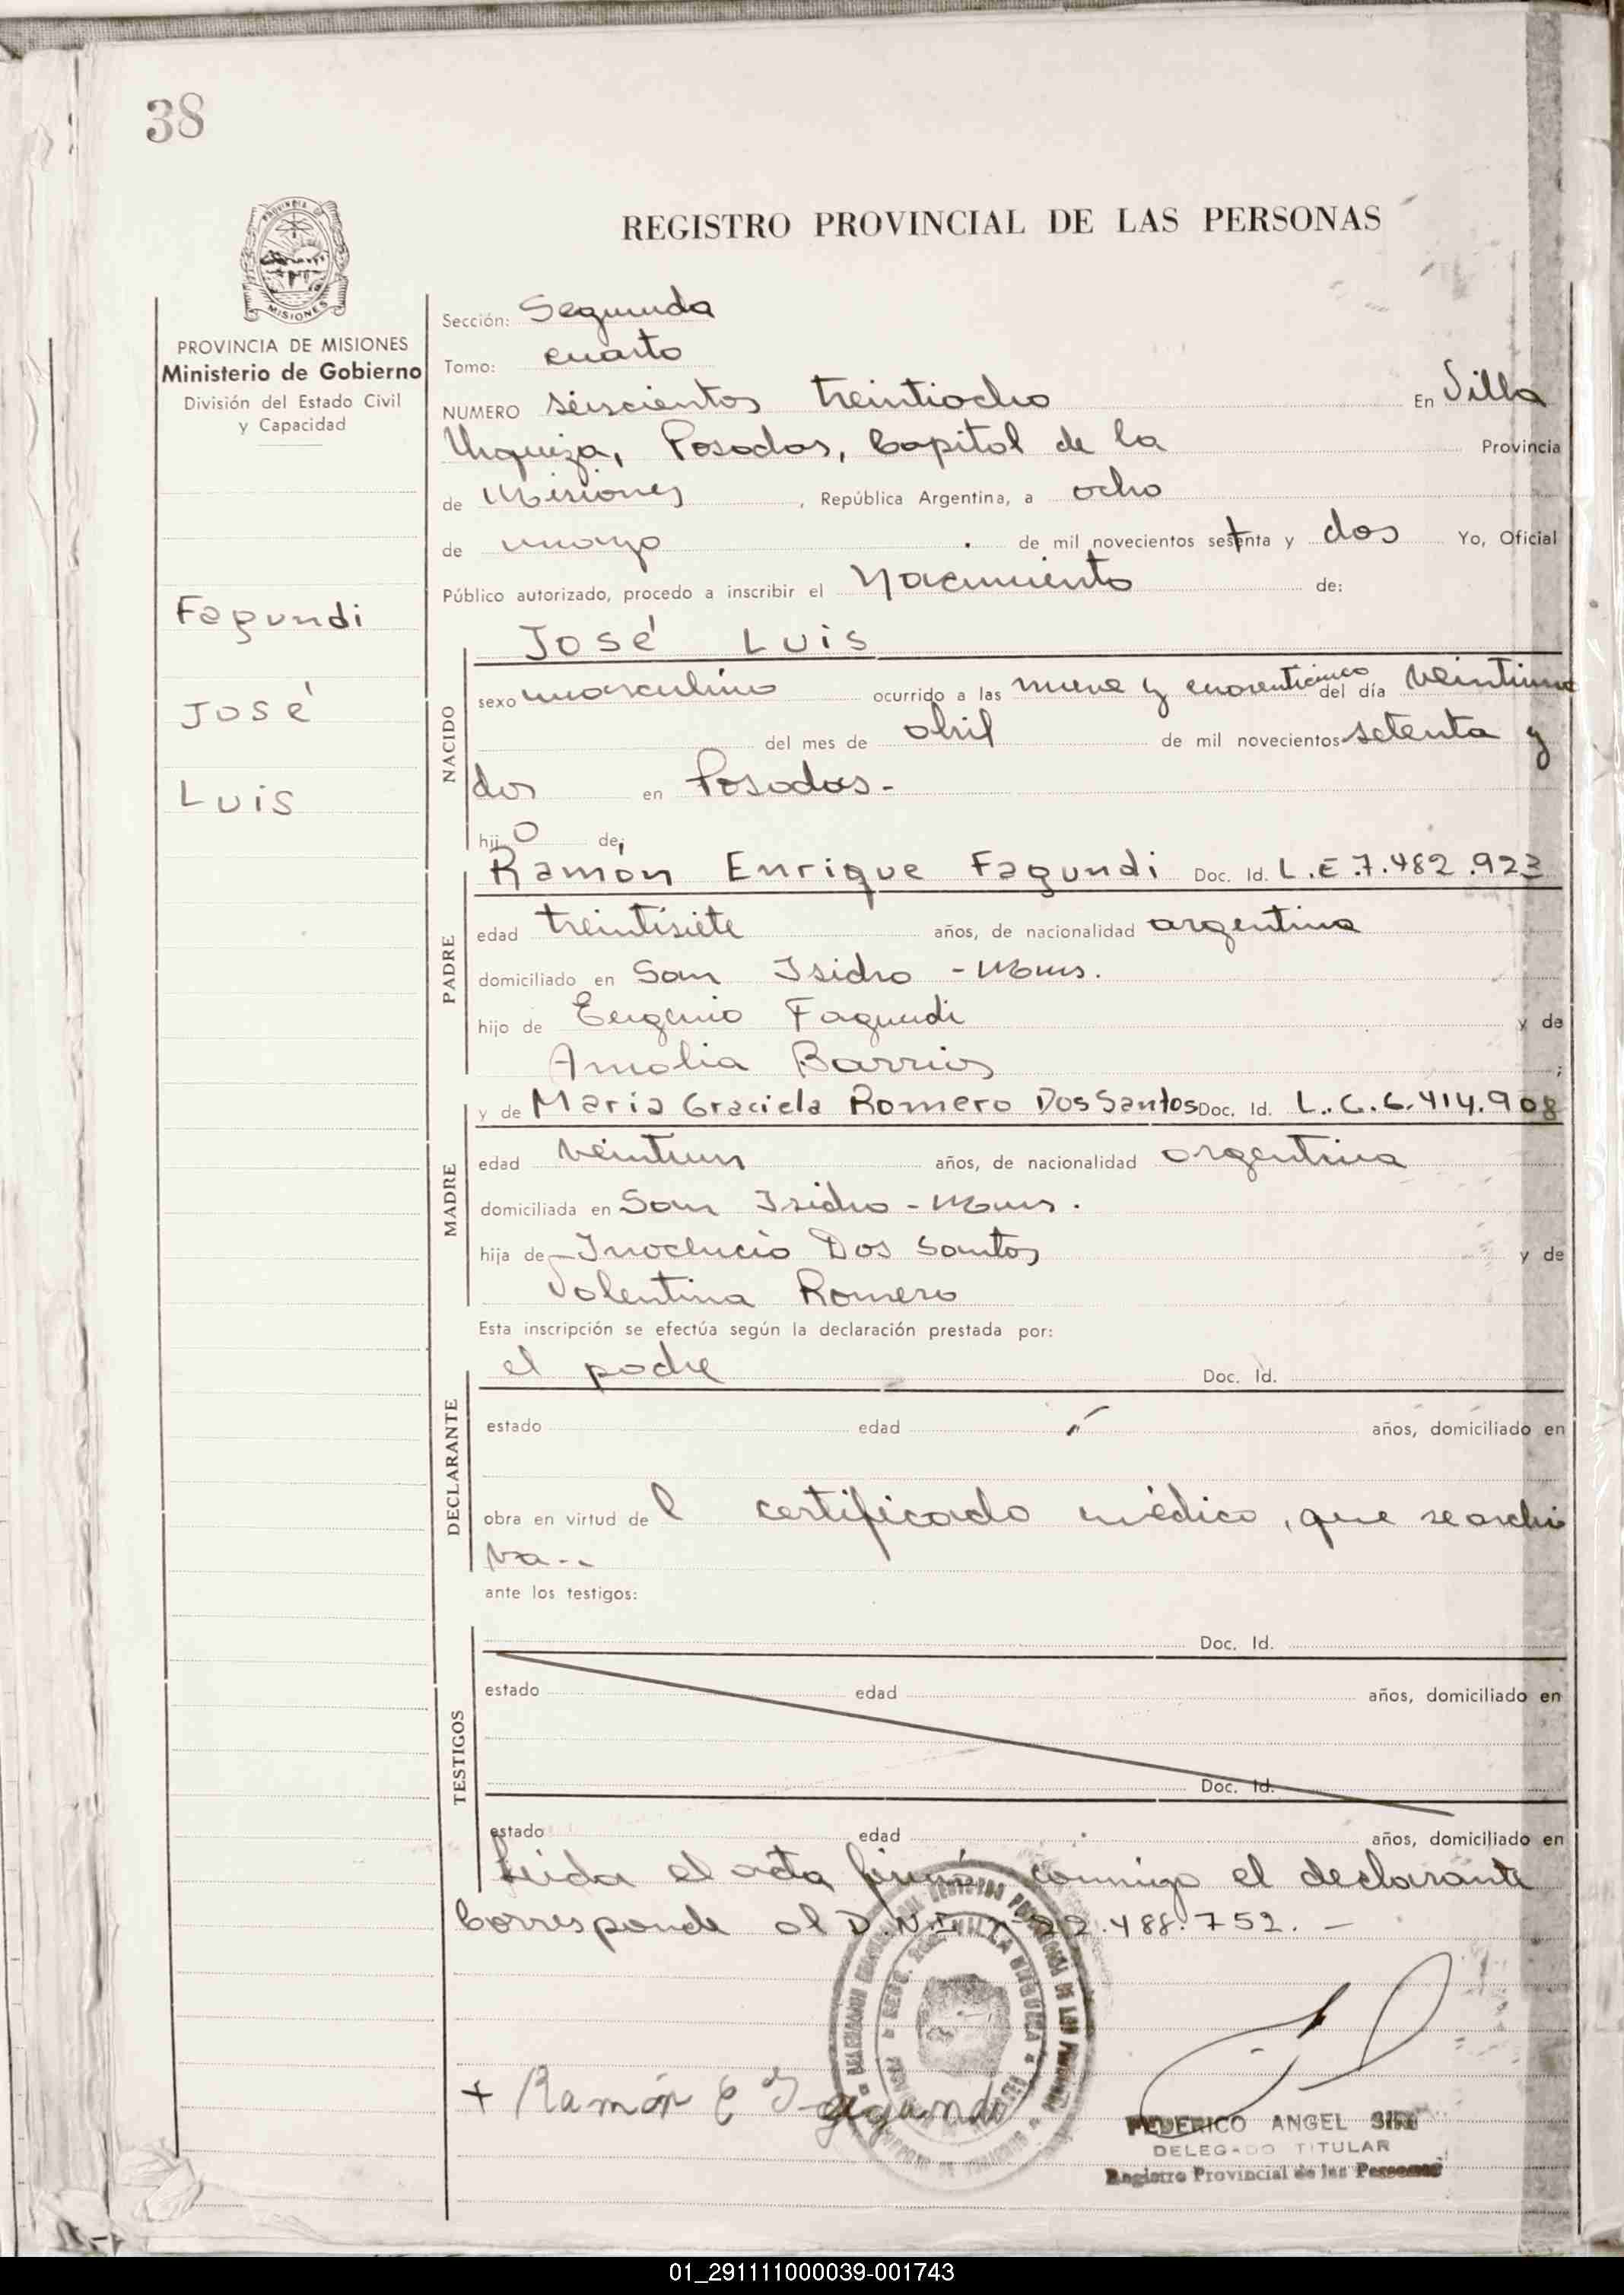 38
PROVINCIA DE
MISIONES
REGISTRO PROVINCIAL DE LAS PERSONAS
PROVINCIA DE MISIONES
Ministerio de Gobierno
División del Estado Civil
y Capacidad
Fagundi
José
Luis
Sección: Segunda
Tomo: cuarto
NUMERO seiscientos treintiocho En Villa
Urquiza, Posadas, Capital de la Provincia
de Misiones, República Argentina, a ocho
de mayo de mil novecientos setenta y dos Yo, Oficial
Público autorizado, procedo a inscribir el Nacimiento de:
José Luis
NACIDO
sexo masculino ocurrido a las nueve y cuarenticinco del día veintiuno
del mes de abril de mil novecientos setenta y
dos en Posadas.-
hijo de:
PADRE
Ramón Enrique Fagundi Doc. Id. L.E.7.482.923
edad treintisiete años, de nacionalidad argentina
domiciliado en San Isidro - Mnes.
hijo de Eugenio Fagundi y de
Amalia Barrios ;
MADRE
y de María Graciela Romero Dos Santos Doc. Id. L.C.6.414.908
edad veintiun años, de nacionalidad argentina
domiciliada en San Isidro - Mnes.
hija de Inocencio Dos Santos y de
Valentina Romero
Esta inscripción se efectúa según la declaración prestada por:
DECLARANTE
el padre Doc. Id.
estado edad años, domiciliado en
obra en virtud del certificado médico, que se archi
va.-
ante los testigos:
TESTIGOS
Doc. Id.
estado edad años, domiciliado en
Doc. Id.
estado edad años, domiciliado en
Leida el acta firmó conmigo el declarante
Corresponde al D.N.I. nº 22.488.752. -
VILLA URQUIZA
+ Ramón E Fagundi
FEDERICO ANGEL
DELEGADO TITULAR
Registro Provincial de las Personas
01_291111000039-001743